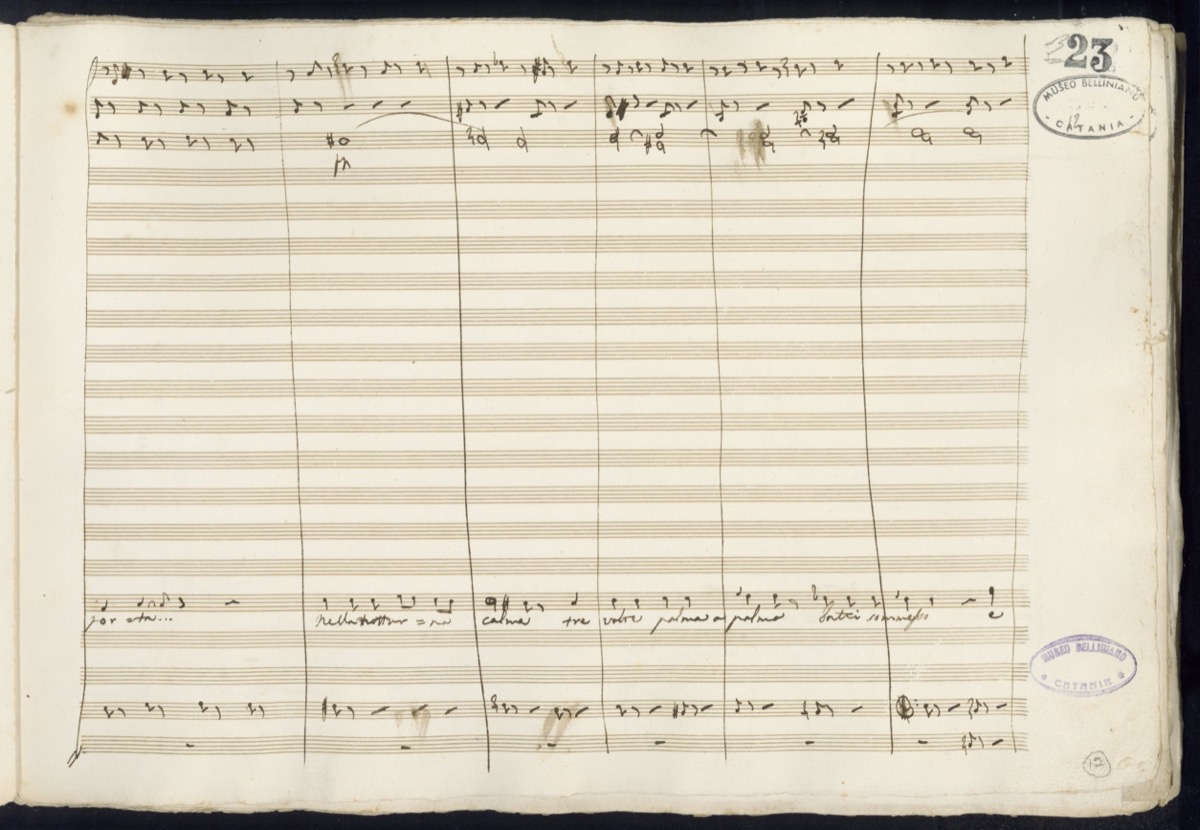 23
MUSEO BELLINIANO
CATANIA
Nella nottur=na calma tre volte palma a palma batti sommesso e
MUSEO BELLINIANO
* CATANIA *
12